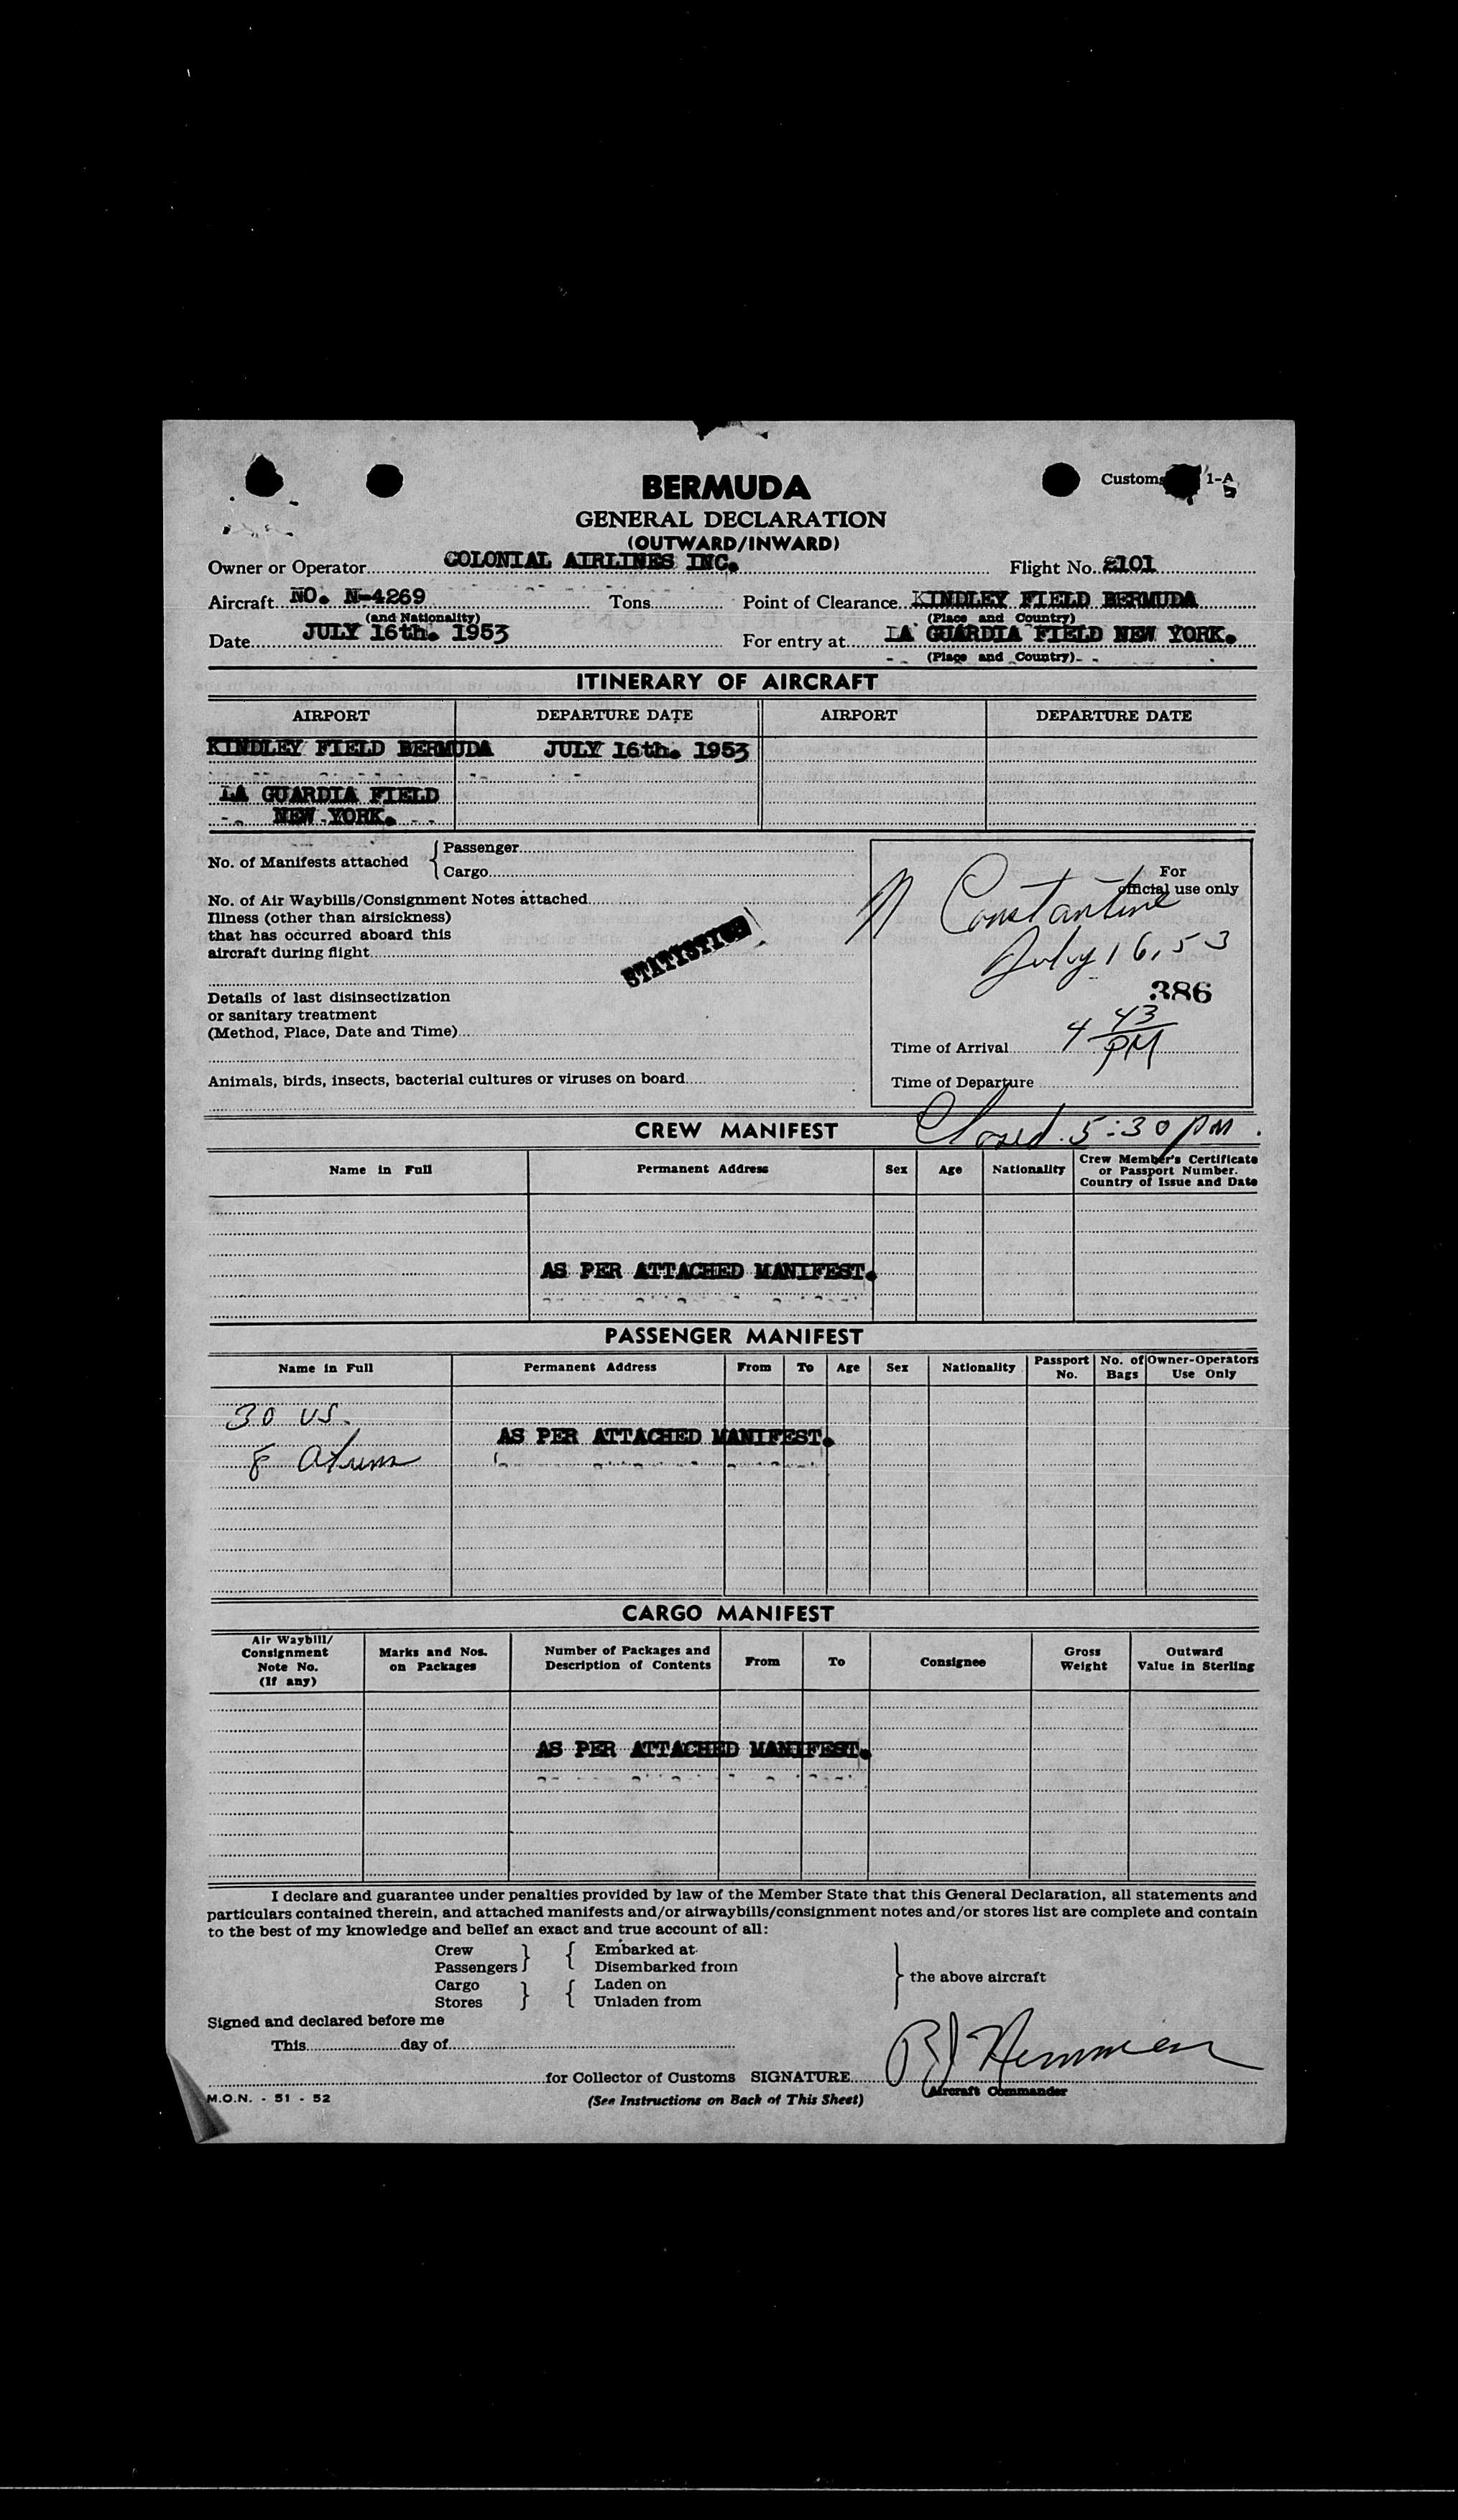 Customs 1-A
BERMUDA
GENERAL DECLARATION
(OUTWARD/INWARD)
Owner or Operator COLONIAL AIRLINES INC. Flight No. 2101
Aircraft NO. N-4269 Tons Point of Clearance KINDLEY FIELD BERMUDA
(and Nationality) (Place and Country)
Date JULY 16th. 1953 For entry at LA GUARDIA FIELD NEW YORK.
(Place and Country)
ITINERARY OF AIRCRAFT
AIRPORT DEPARTURE DATE AIRPORT DEPARTURE DATE
KINDLEY FIELD BERMUDA JULY 16th. 1953
LA GUARDIA FIELD
NEW YORK.
No. of Manifests attached { Passenger
Cargo
For
official use only
N Constantine
July 16, 53
386
No. of Air Waybills/Consignment Notes attached
Illness (other than airsickness)
that has occurred aboard this
aircraft during flight
STATISTICS
Details of last disinsectization
or sanitary treatment
(Method, Place, Date and Time)
Time of Arrival 4 43 PM
Animals, birds, insects, bacterial cultures or viruses on board
Time of Departure
Closed 5:30 PM.
CREW MANIFEST
Name in Full Permanent Address Sex Age Nationality Crew Member's Certificate or Passport Number. Country of Issue and Date
AS PER ATTACHED MANIFEST.
PASSENGER MANIFEST
Name in Full Permanent Address From To Age Sex Nationality Passport No. No. of Bags Owner-Operators Use Only
30 US.
AS PER ATTACHED MANIFEST.
8
CARGO MANIFEST
Air Waybill/ Consignment Note No. (If any) Marks and Nos. on Packages Number of Packages and Description of Contents From To Consignee Gross Weight Outward Value in Sterling
AS PER ATTACHED MANIFEST.
I declare and guarantee under penalties provided by law of the Member State that this General Declaration, all statements and
particulars contained therein, and attached manifests and/or airwaybills/consignment notes and/or stores list are complete and contain
to the best of my knowledge and belief an exact and true account of all:
Crew } { Embarked at
Passengers Disembarked from
} the above aircraft
Cargo } { Laden on
Stores Unladen from
Signed and declared before me
This day of
for Collector of Customs SIGNATURE
Aircraft Commander
M.O.N. - 51 - 52
(See Instructions on Back of This Sheet)